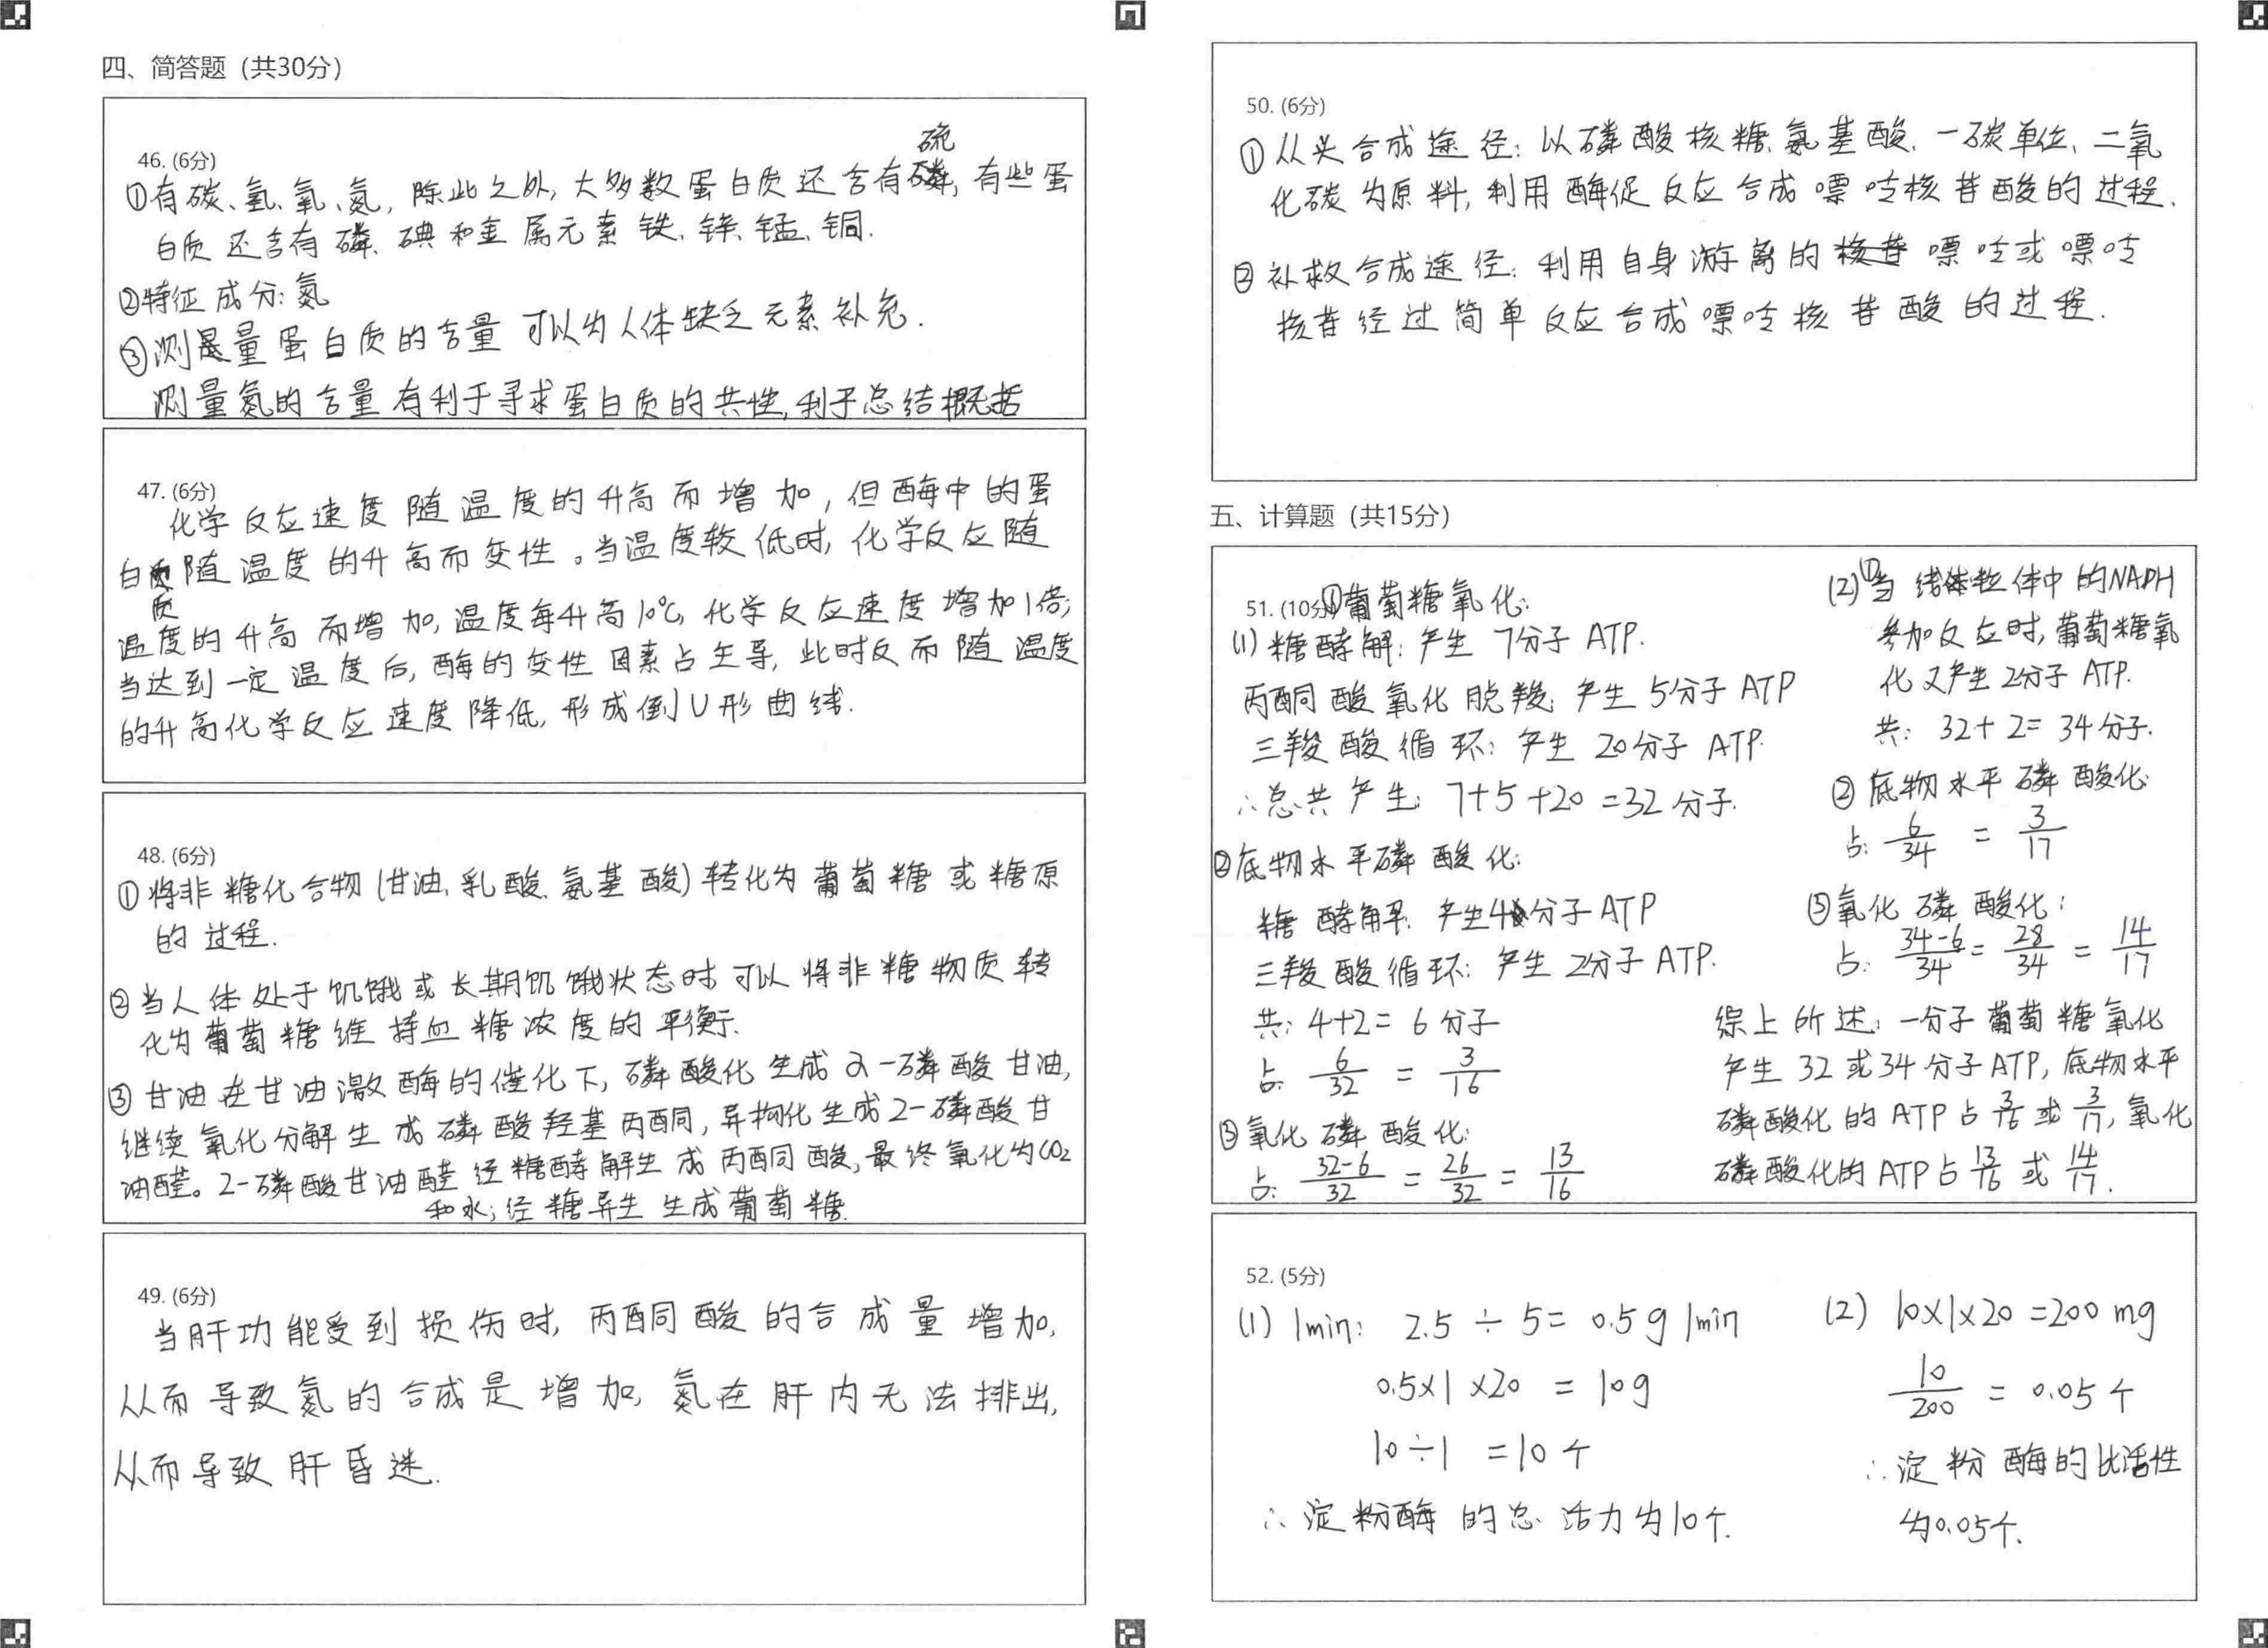 四、简答题（共30分）
46. (6分)
①有碳、氢、氧、氮，除此之外，大多数蛋白质还含有硫，有些蛋
白质还含有磷、碘和金属元素铁、锌、锰、铜.
②特征成分：氮
③测量蛋白质的含量可以为人体缺乏元素补充.
测量氮的含量有利于寻求蛋白质的共性,利于总结概括
47. (6分)
化学反应速度随温度的升高而增加，但酶中的蛋
白质随温度的升高而变性。当温度较低时,化学反应随
温度的升高而增加,温度每升高10℃,化学反应速度增加1倍;
当达到一定温度后,酶的变性因素占主导,此时反而随温度
的升高化学反应速度降低,形成倒U形曲线.
48. (6分)
①将非糖化合物(甘油、乳酸、氨基酸)转化为葡萄糖或糖原
的过程.
②当人体处于饥饿或长期饥饿状态时可以将非糖物质转
化为葡萄糖维持血糖浓度的平衡.
③甘油在甘油激酶的催化下,磷酸化生成α-磷酸甘油,
继续氧化分解生成磷酸羟基丙酮,异构化生成2-磷酸甘
油醛。2-磷酸甘油醛经糖酵解生成丙酮酸,最终氧化为CO2
和水;经糖异生生成葡萄糖.
49. (6分)
当肝功能受到损伤时,丙酮酸的合成量增加,
从而导致氮的合成是增加,氮在肝内无法排出,
从而导致肝昏迷.
50. (6分)
①从头合成途径:以磷酸核糖、氨基酸、一碳单位、二氧
化碳为原料,利用酶促反应合成嘌呤核苷酸的过程.
②补救合成途径:利用自身游离的嘌呤或嘌呤
核苷经过简单反应合成嘌呤核苷酸的过程.
五、计算题（共15分）
51. (10分)①葡萄糖氧化:
(1)糖酵解:产生7分子ATP.
丙酮酸氧化脱羧:产生5分子ATP
三羧酸循环:产生20分子ATP.
∴总共产生:7+5+20=32分子.
②底物水平磷酸化:
糖酵解:产生4分子ATP
三羧酸循环:产生2分子ATP.
共:4+2=6分子
占:6/32=3/16
③氧化磷酸化:
占:(32-6)/32=26/32=13/16
(2)①当线粒体中的NADH
参加反应时,葡萄糖氧
化又产生2分子ATP.
共:32+2=34分子.
②底物水平磷酸化:
占:6/34=3/17
③氧化磷酸化:
占:(34-6)/34=28/34=14/17
综上所述:一分子葡萄糖氧化
产生32或34分子ATP,底物水平
磷酸化的ATP占3/16或3/17,氧化
磷酸化的ATP占13/16或14/17.
52. (5分)
(1) 1min: 2.5÷5=0.5g/min
0.5×1×20=10g
10÷1=10个
∴淀粉酶的总活力为10个.
(2) 10×1×20=200mg
10/200=0.05个
∴淀粉酶的比活性
为0.05个.